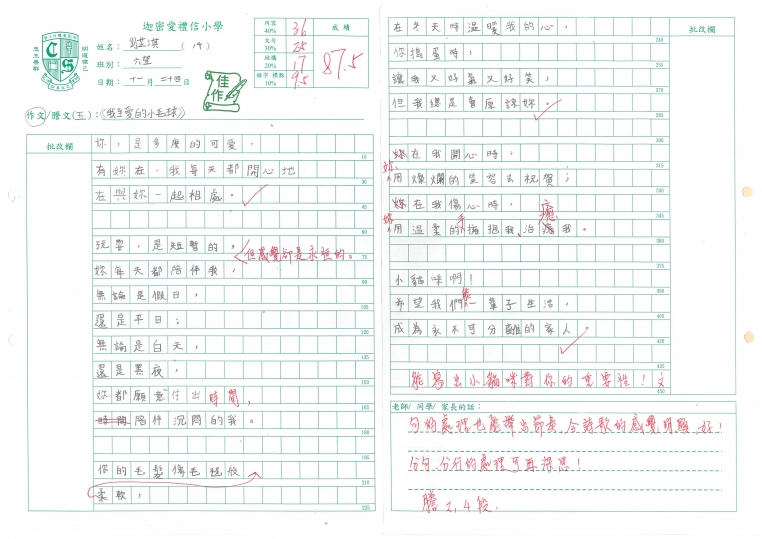 迦密愛禮信小學
內容 40% 36
文句 30% 25
結構 20% 17
錯字 標點 10% 9.5
成績
87.5
姓名：
班別：六望
日期：十一月二十四日
佳作
作文/謄文(五)：《我至愛的小毛球》
批改欄
妳，是多麼的可愛，
15
有妳在，我每天都開心地
在與妳一起相處。
45
60
玩耍，是短暫的，
但感覺卻是永恆的。
妳每天都陪伴我，
無論是假日，
105
還是平日；
無論是白天，
135
還是黑夜，
妳都願意付出時間，
165
時間陪伴沉悶的我。
195
你的毛髮像毛毯般
柔軟，
225
批改欄
在冬天時溫暖我的心，
240
你搗蛋時，
讓我又好氣又好笑，
但我總是會原諒妳。
285
妳在我開心時，
315
妳用燦爛的笑容去祝賀；
妳在我傷心時，
345
妳用溫柔的手擁抱我、治癒我。
375
小貓咪啊！
390
希望我們能一輩子生活，
405
成為永不可分離的家人。
420
435
能寫出小貓咪對你的重要性！文
450
老師/ 同學/ 家長的話：
句的處理也能帶出節奏，令詩歌的感覺明顯，好！
分句、分行的處理可再深思！
謄2,4段